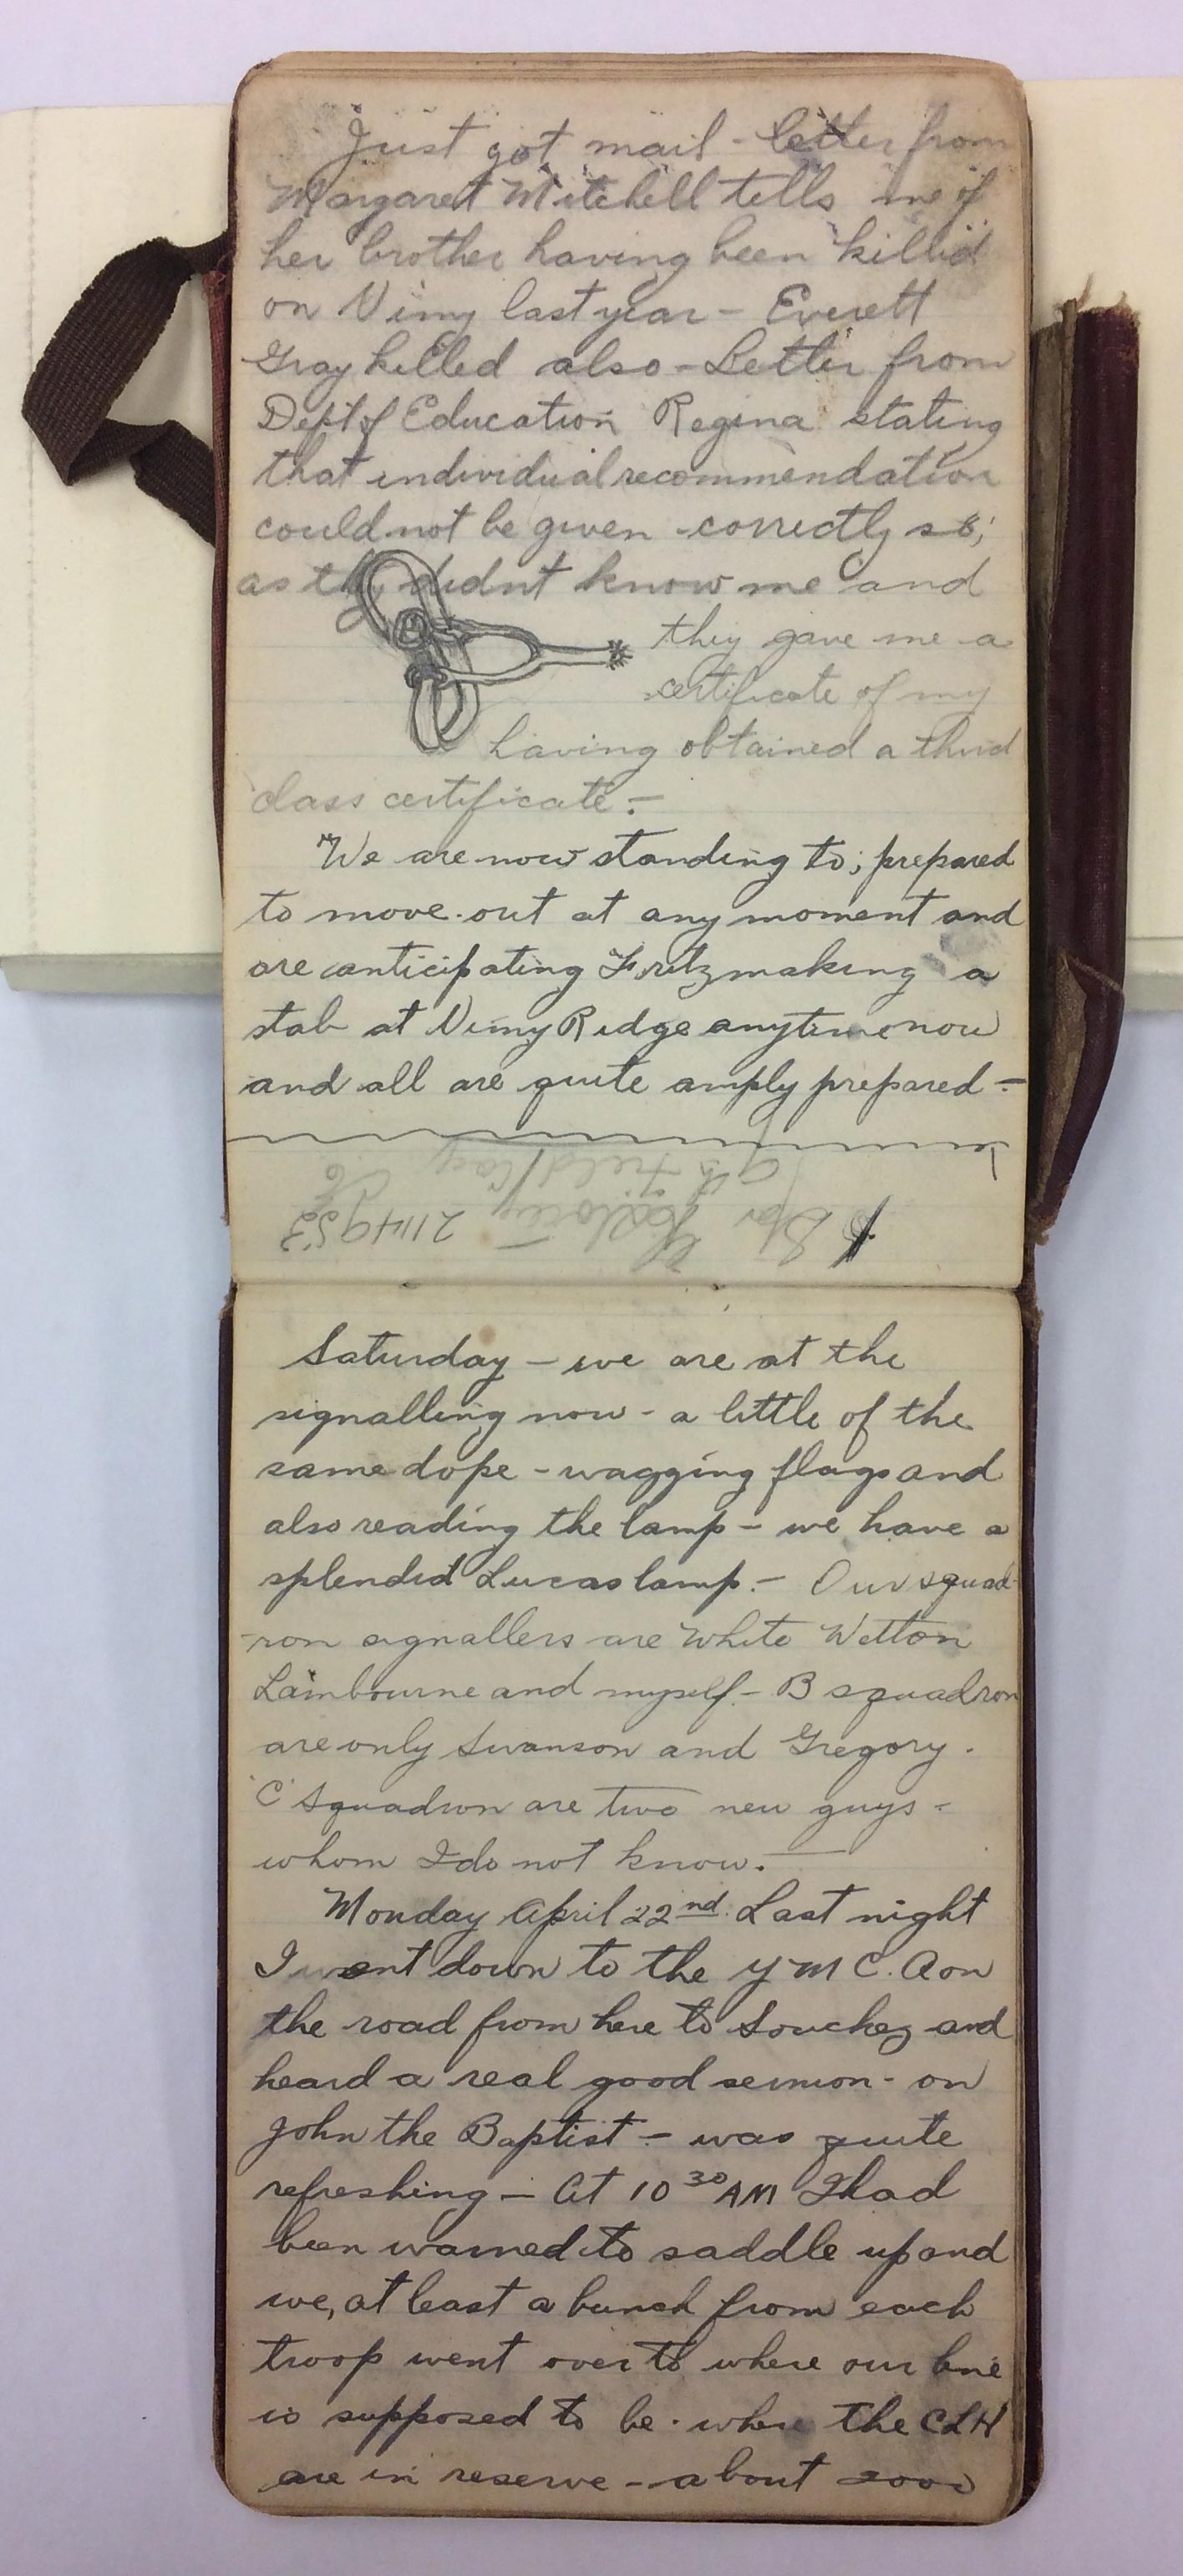 Just got mail - letter from
Margaret Mitchell tells me of
her brother having been killed
on Vimy last year - Everett
Gray killed also - Letter from
Dept of Education Regina stating
that individual recommendation
could not be given - correctly so;
as they didnt know me and
they gave me a
certificate of my
having obtained a third
class certificate. -
We are now standing to; prepared
to move out at any moment and
are anticipating Fritz making a
stab at Vimy Ridge anytime now
and all are quite amply prepared -
2114953
Saturday - we are at the
signalling now - a little of the
same dope - wagging flags and
also reading the lamp - we have a
splendid Lucas lamp. - Our squad-
-ron signallers are White Wetton
Lambourne and myself - B squadron
are only Swanson and Gregory.
'C' Squadron are two new guys -
whom I do not know. -
Monday April 22nd. Last night
I went down to the Y M C. A on
the road from here to Souchez and
heard a real good sermon - on
John the Baptist - was quite
refreshing - At 10 30 AM I had
been warned to saddle up and
we, at least a bunch from each
troop went over to where our line
is supposed to be - where the CLH
are in reserve - about 2000